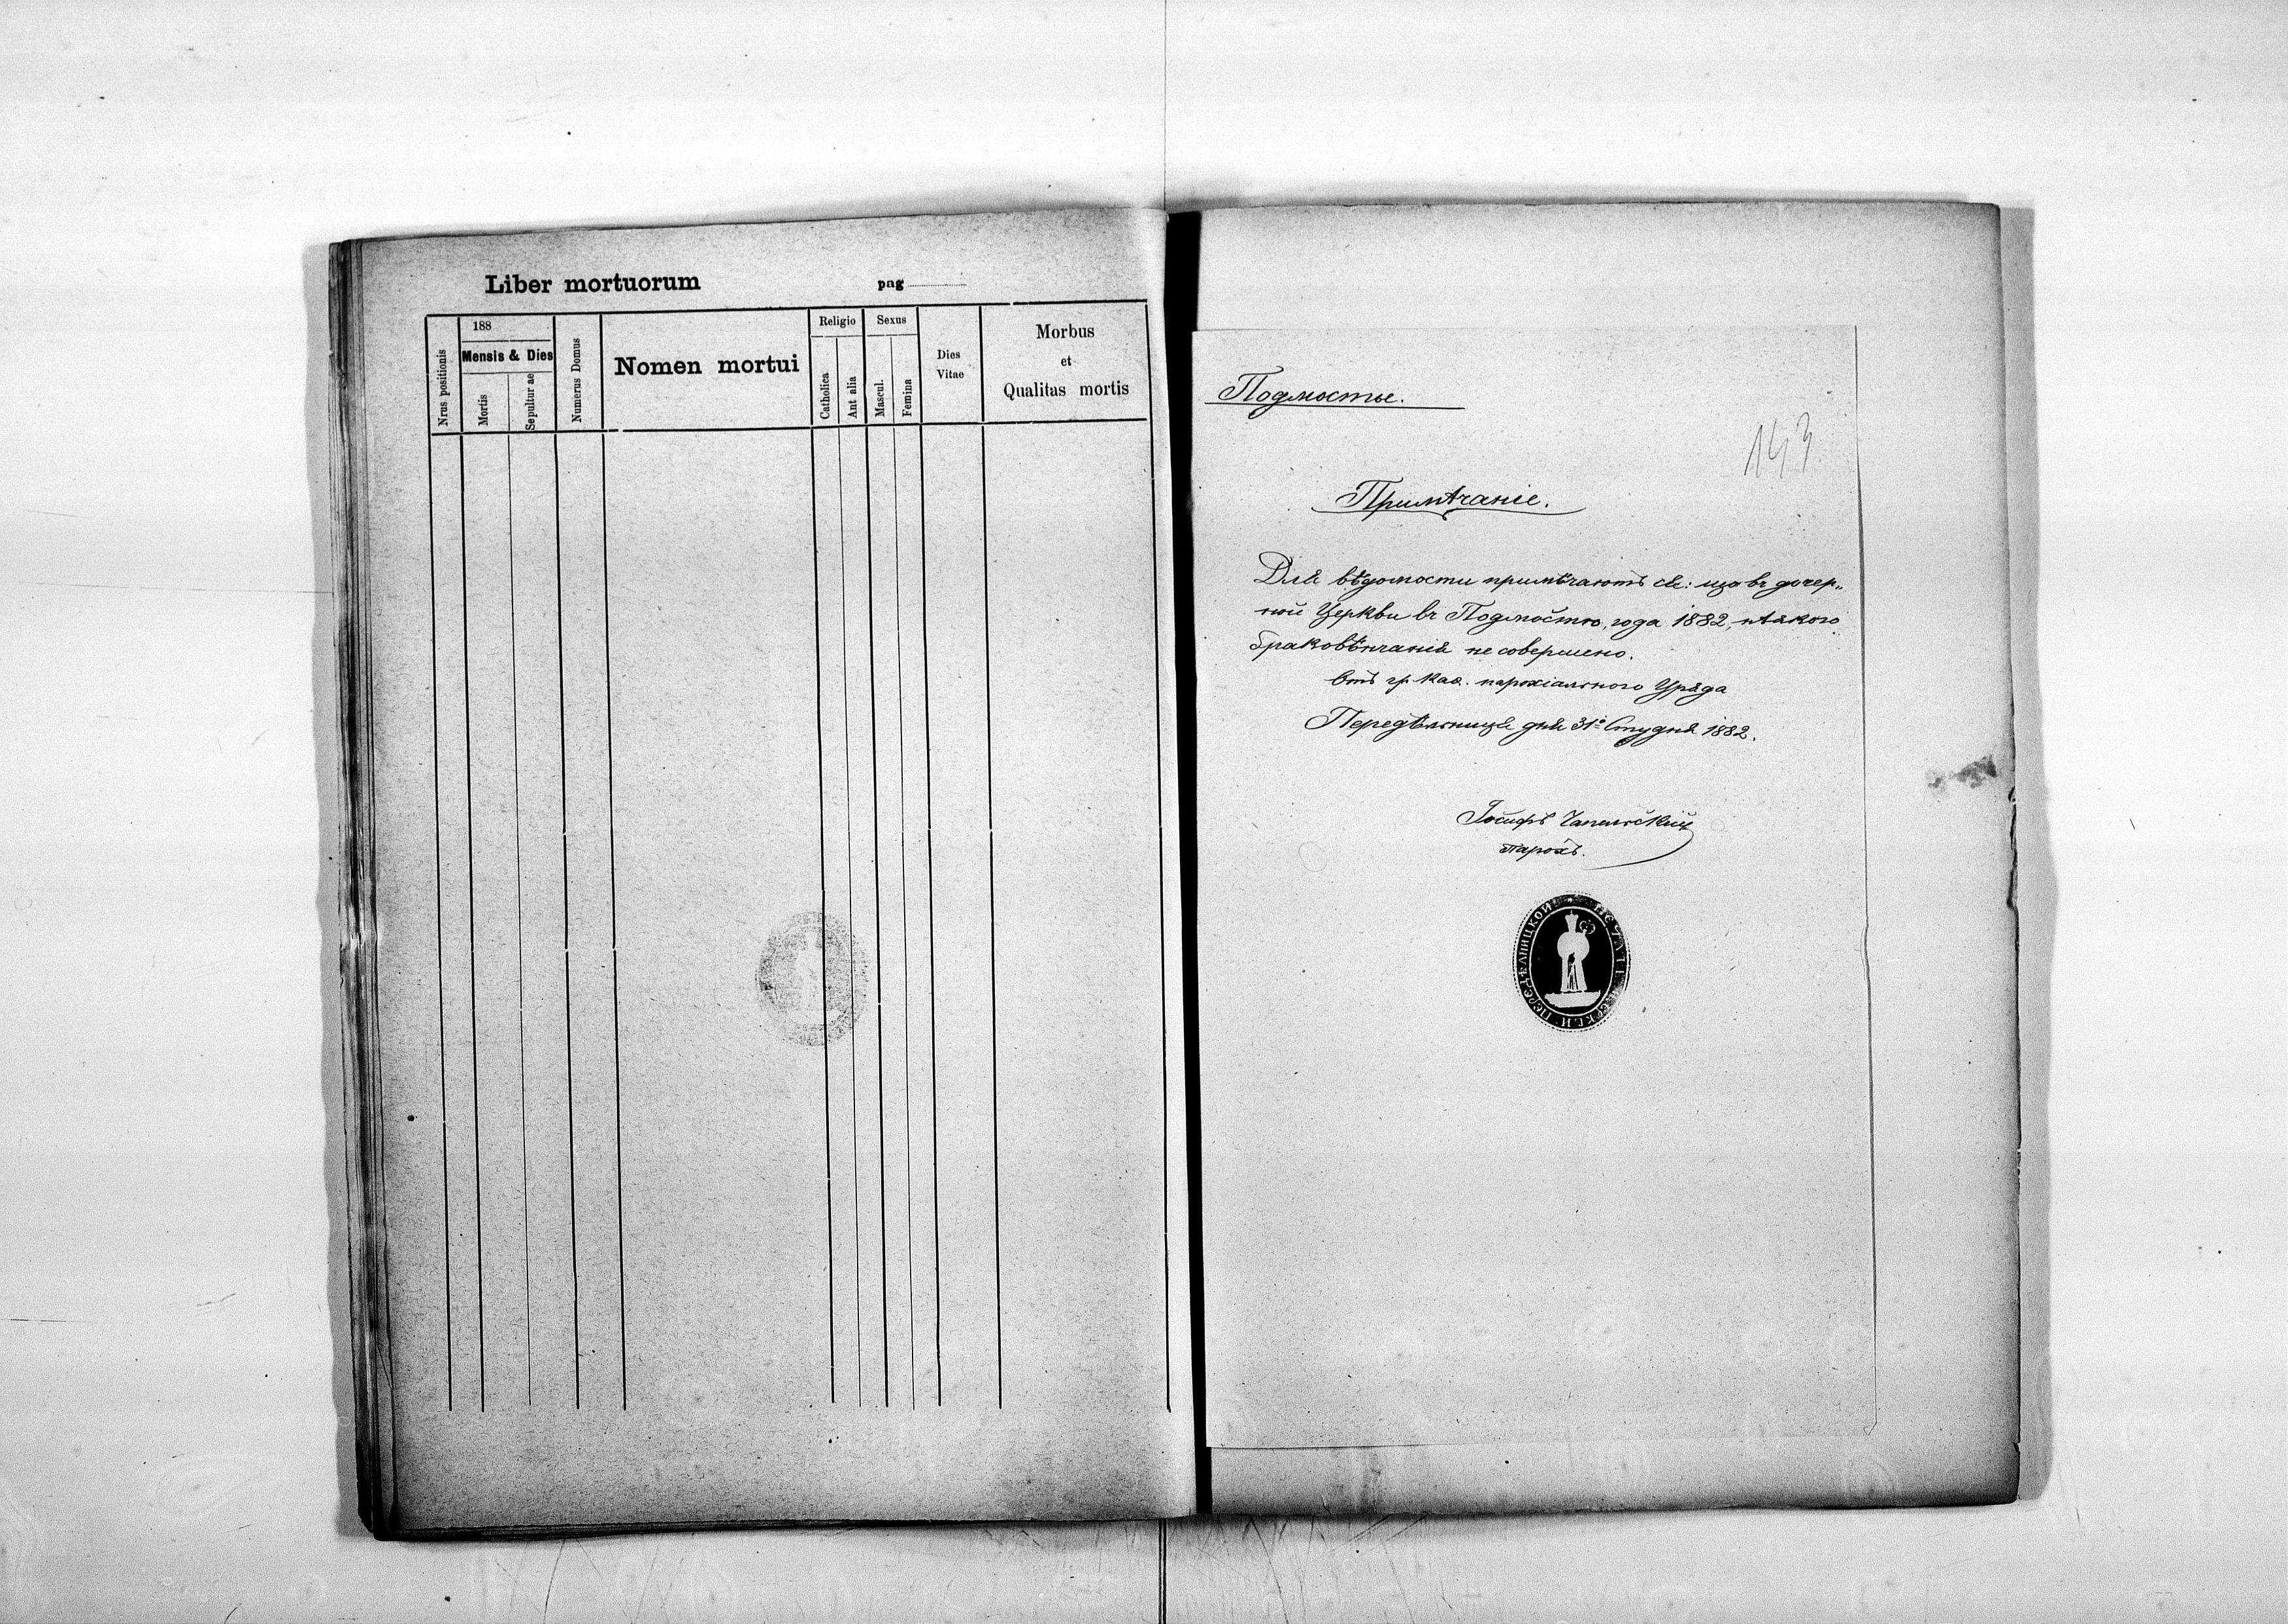 Liber mortuorum pag
Nrus positionis
188
Mensis & Dies
Mortis
Sepultur ae
Numerus Domus
Nomen mortui
Religio
Catholica
Ant alia
Sexus
Mascul.
Femina
Dies
Vitae
Morbus
et
Qualitas mortis
Подмостье.
143
Примѣчаніе.
Для вѣдомости примѣчаютъ ся: що въ дочер„
ной Церкви въ Подмостю, года 1882, нѣякого
браковѣнчанія не совершено.
Отъ гр. каѳ. парохіального Уряда
Передѣльница дня 31º Студня 1882.
Іосифъ Чапельскій
парохъ.
ПЕЧАТЬ ЦЕРКВИ ПЕРЕДѢЛНИЦКОЙ